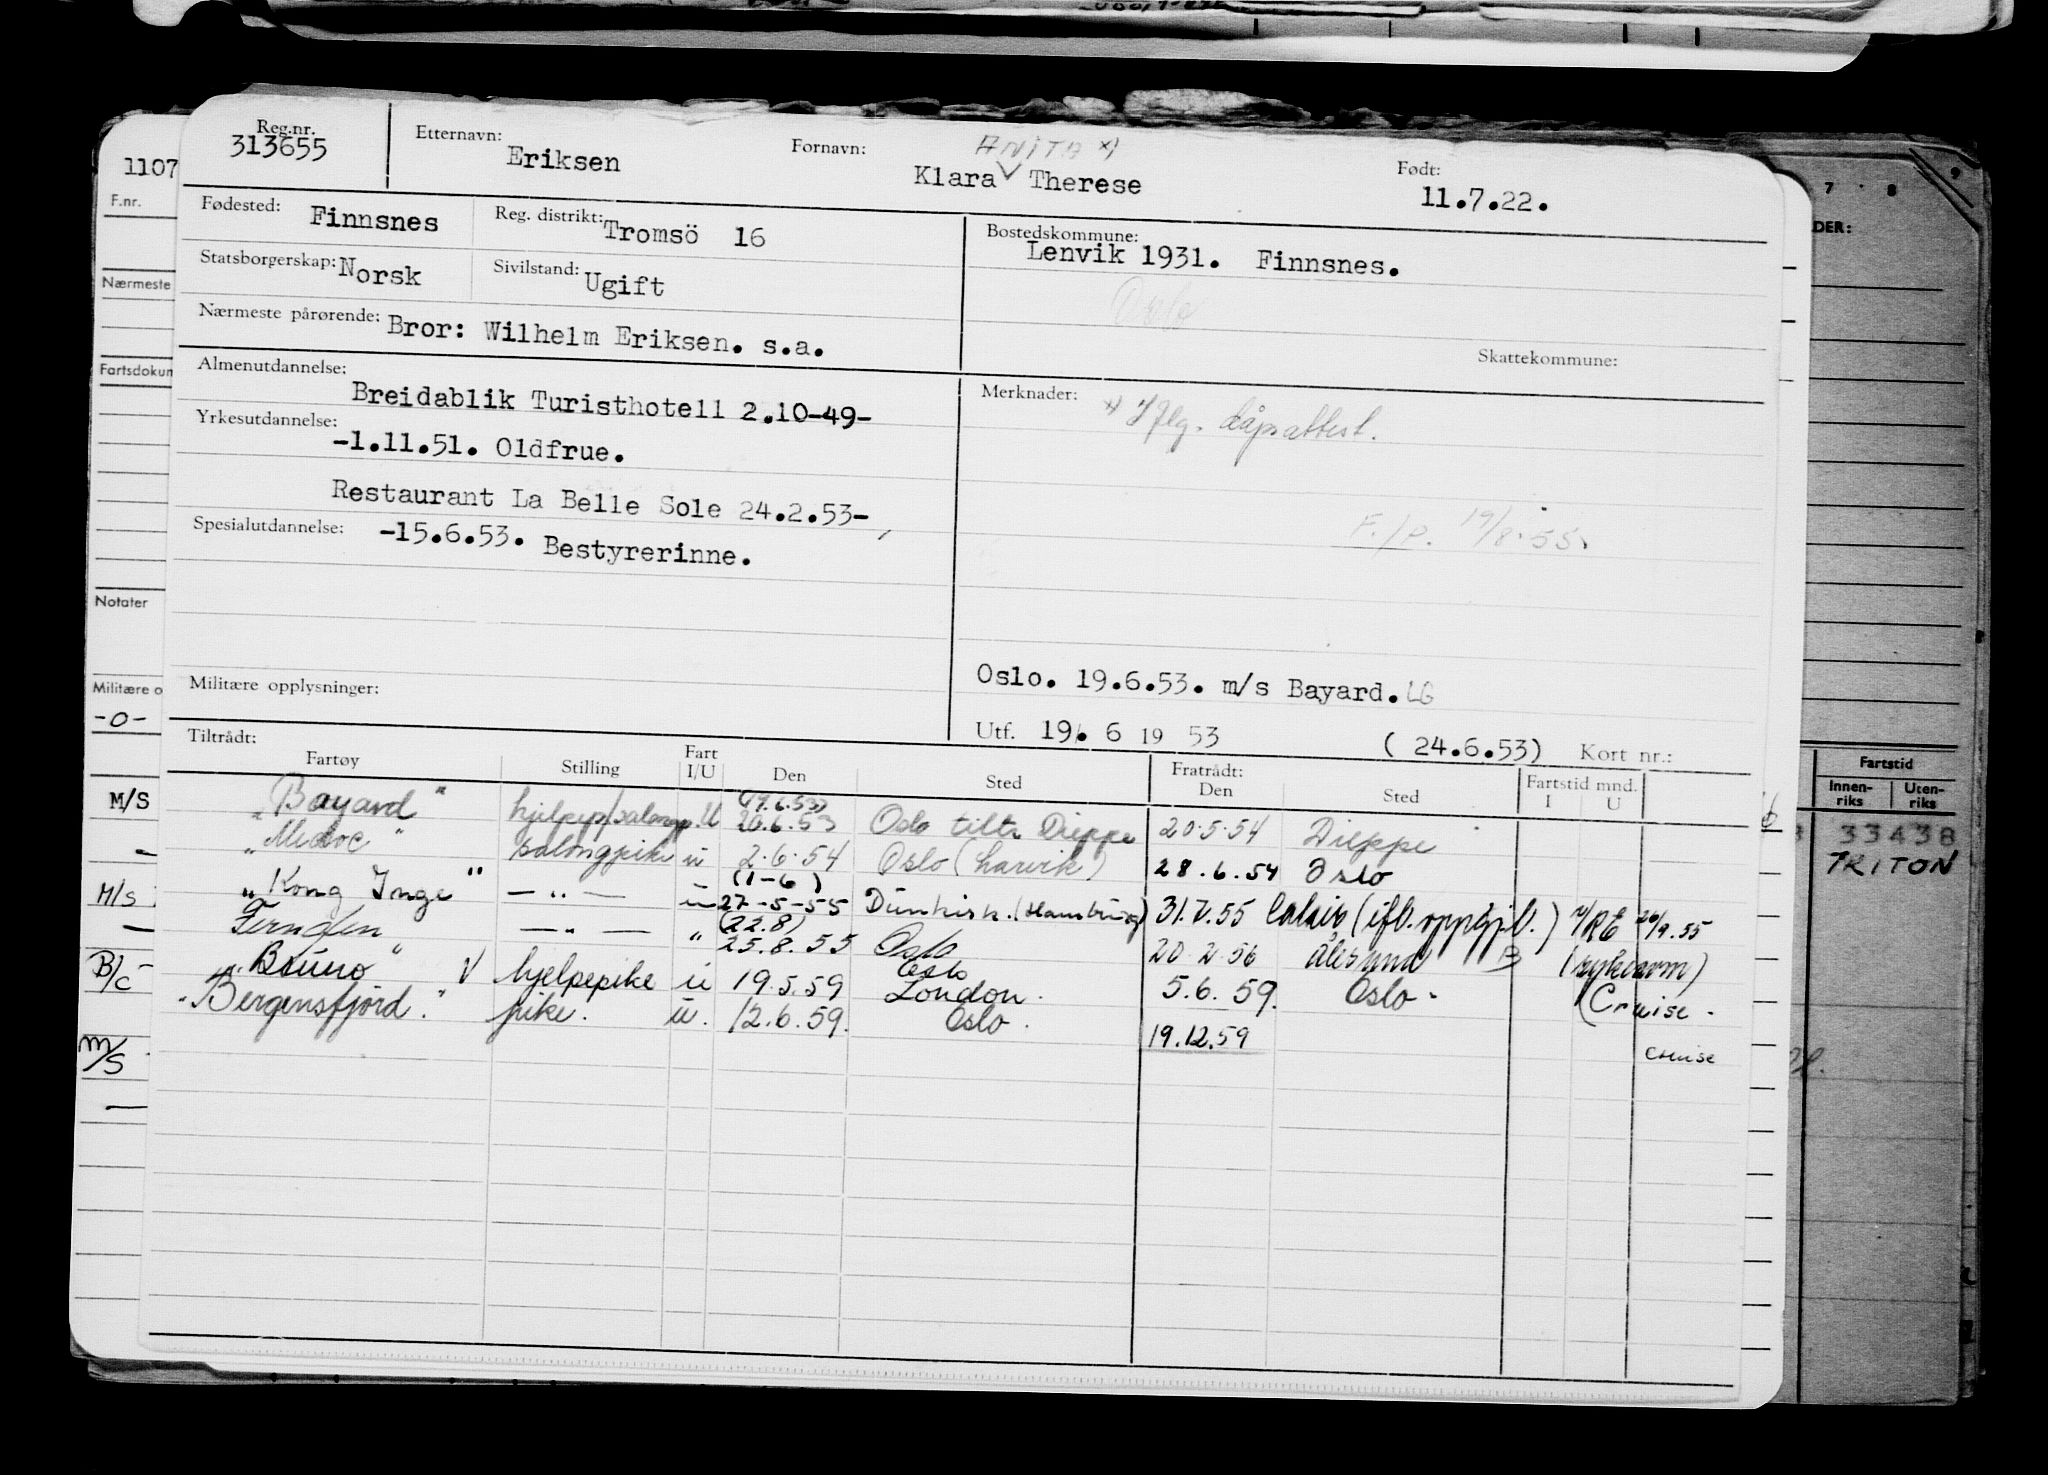 Reg.nr. 313655
Etternavn: Eriksen
Fornavn: Klara ANITA x) Therese
Født: 11.7.22.
Fødested: Finnsnes
Reg. distrikt: Tromsö 16
Bostedskommune: Lenvik 1931. Finnsnes.
Oslo
Statsborgerskap: Norsk
Sivilstand: Ugift
Nærmeste pårørende: Bror: Wilhelm Eriksen. s.a.
Skattekommune:
Almenutdannelse:
Breidablik Turisthotell 2.10-49-
Yrkesutdannelse:
-1.11.51. Oldfrue.
Restaurant La Belle Sole 24.2.53-
Spesialutdannelse: -15.6.53. Bestyrerinne.
Merknader: x) Iflg. dåpsattest.
F./P. 19/8.55.
Militære opplysninger:
Oslo. 19.6.53. m/s Bayard. LG
Utf. 19. 6 19 53 (24.6.53) Kort nr.:
Tiltrådt: Fratrådt:
Fartøy Stilling Fart I/U Den Sted Den Sted Fartstid mnd. I U
(19.6.53)
"Bayard" U 20.6.53 Oslo tiltr Dieppe 20.5.54 Dieppe
"Medoc" salongpike u 2.6.54 Oslo (Larvik) 28.6.54 Oslo
(1-6)
"Kong Inge" — " — u 27-5-55 Dünkirk. (Hamburg) 31.7.55 Calais (ifl. oppgj.l.) 26/9.55
(22.8)
Ferngl​en — " — " 25.8.55 Oslo 20 2 56 Ålesund
"Bruno" V hjelpepike u 19.5.59 Oslo London. 5.6.59. Oslo. (Cruise.
"Bergensfjord". pike. u. 12.6.59. Oslo. 19.12.59 cruise
1107
F.nr.
Nærmeste
Fartsdokum
Notater
Militære o
-0-
M/S
—
M/S
—
B/c
M/S
—
7 8 9
DER:
Fartstid
Innen-riks Uten-riks
33438
TRITON